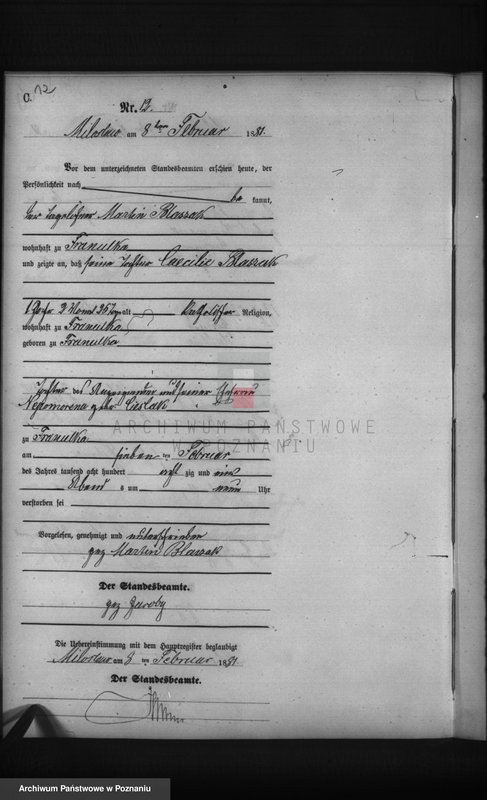 C. 12
Nr. 12.
Miloslaw am 8ten Februar 1881
Vor dem unterzeichneten Standesbeamten erschien heute, der
Persönlichkeit nach
be kannt,
der Tagelöhner Martin Blaszak
wohnhaft zu Franulka
und zeigte an, daß seine Tochter Caecilie Blaszak
1 Jahr 2 Monat 25 Tage alt katholischer Religion,
wohnhaft zu Franulka
geboren zu Franulka
Tochter des Anzeigenden und seiner Ehefrau
Nepomocena geb. Cieslak
zu Franulka
am sieben ten Februar
des Jahres tausend acht hundert acht zig und eins
Abend s um neun Uhr
verstorben sei
Vorgelesen, genehmigt und unterschrieben
gez Martin Blaszak
Der Standesbeamte.
gez Jacoby
Die Uebereinstimmung mit dem Hauptregister beglaubigt
Miloslaw am 8 ten Februar 1881
Der Standesbeamte.
ARCHIWUM PAŃSTWOWE
W POZNANIU
Archiwum Państwowe w Poznaniu